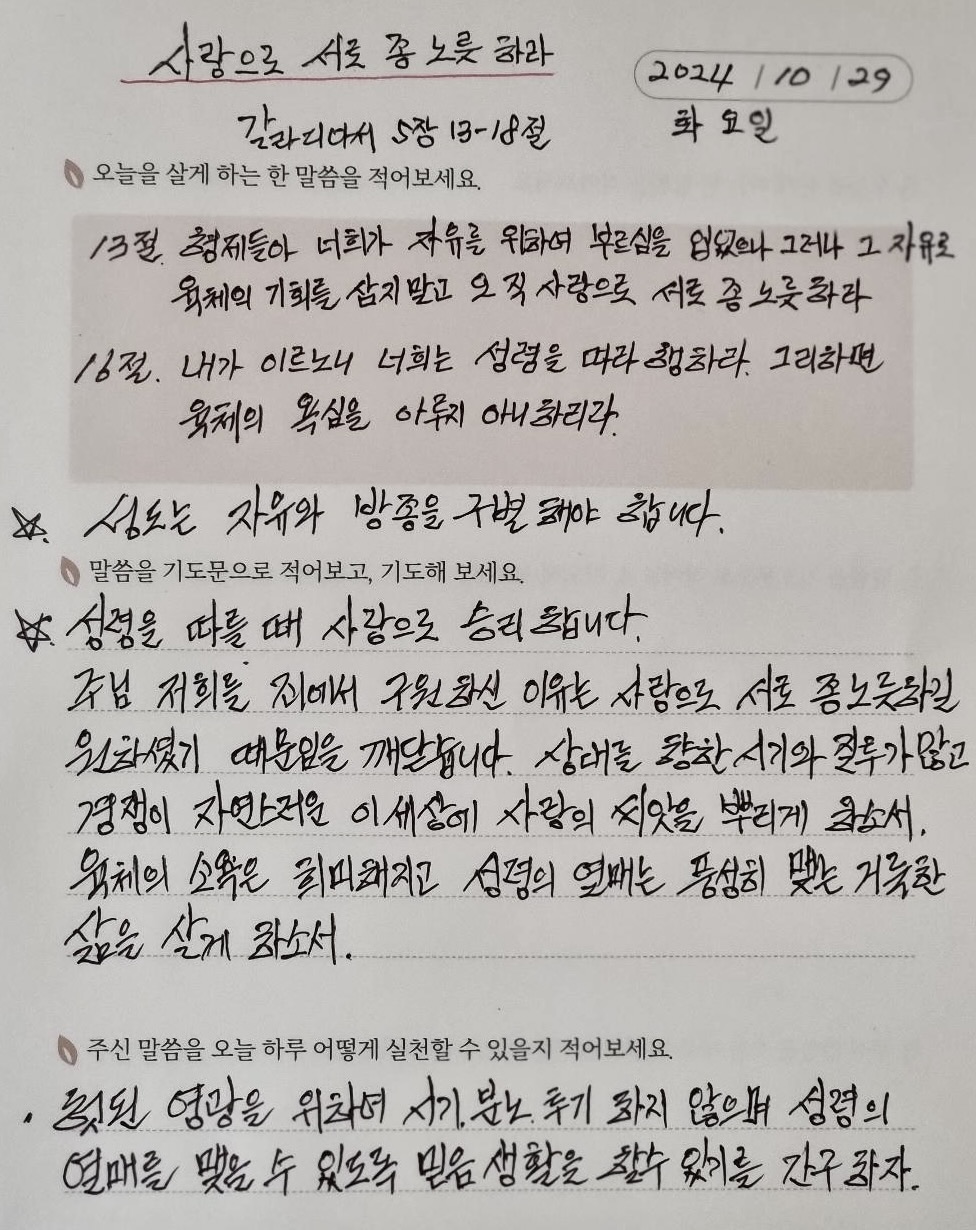 사랑으로 서로 종 노릇 하라
2024 / 10 / 29
갈라디아서 5장 13-18절
화요일
오늘을 살게 하는 한 말씀을 적어보세요.
13절. 형제들아 너희가 자유를 위하여 부르심을 입었으나 그러나 그 자유로
육체의 기회를 삼지말고 오직 사랑으로 서로 종 노릇 하라
16절. 내가 이르노니 너희는 성령을 따라 행하라. 그리하면
육체의 욕심을 이루지 아니하리라.
☆. 성도는 자유와 방종을 구별 해야 합니다.
말씀을 기도문으로 적어보고, 기도해 보세요.
☆. 성령을 따를 때 사랑으로 승리 합니다.
주님 저희를 죄에서 구원하신 이유는 사랑으로 서로 종노릇하길
원하셨기 때문임을 깨달습니다. 상대를 향한 시기와 질투가 많고
경쟁이 자연스러운 이 세상에 사랑의 씨앗을 뿌리게 하소서.
육체의 소욕은 희미해지고 성령의 열매는 풍성히 맺는 거룩한
삶을 살게 하소서.
주신 말씀을 오늘 하루 어떻게 실천할 수 있을지 적어보세요.
. 헛된 영광을 위하여 시기, 분노. 투기 하지 않으며 성령의
열매를 맺을 수 있도록 믿음 생활을 할수 있기를 간구 하자.